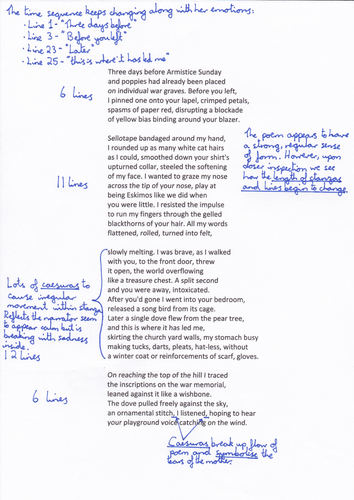 The time sequence keeps changing along with her emotions:
• Line 1 - "Three days before"
• Line 3 - "Before you left"
• Line 23 - "Later"
• Line 25 - "this is where it has led me"
6 lines
Three days before Armistice Sunday
and poppies had already been placed
on individual war graves. Before you left,
I pinned one onto your lapel, crimped petals,
spasms of paper red, disrupting a blockade
of yellow bias binding around your blazer.
11 lines
Sellotape bandaged around my hand,
I rounded up as many white cat hairs
as I could, smoothed down your shirt's
upturned collar, steeled the softening
of my face. I wanted to graze my nose
across the tip of your nose, play at
being Eskimos like we did when
you were little. I resisted the impulse
to run my fingers through the gelled
blackthorns of your hair. All my words
flattened, rolled, turned into felt,
The poem appears to have
a strong, regular sense
of form. However, upon
closer inspection we see
how the length of stanzas
and lines begin to change.
slowly melting. I was brave, as I walked
with you, to the front door, threw
it open, the world overflowing
like a treasure chest. A split second
and you were away, intoxicated.
After you'd gone I went into your bedroom,
released a song bird from its cage.
Later a single dove flew from the pear tree,
and this is where it has led me,
skirting the church yard walls, my stomach busy
making tucks, darts, pleats, hat-less, without
a winter coat or reinforcements of scarf, gloves.
Lots of caesuras to
cause irregular
movement within stanza.
Reflects the narrator seem
to appear calm but is
breaking with sadness
inside.
12 lines
6 lines
On reaching the top of the hill I traced
the inscriptions on the war memorial,
leaned against it like a wishbone.
The dove pulled freely against the sky,
an ornamental stitch, I listened, hoping to hear
your playground voice catching on the wind.
Caesuras break up flow of
poem and symbolise the
tears of the mother.